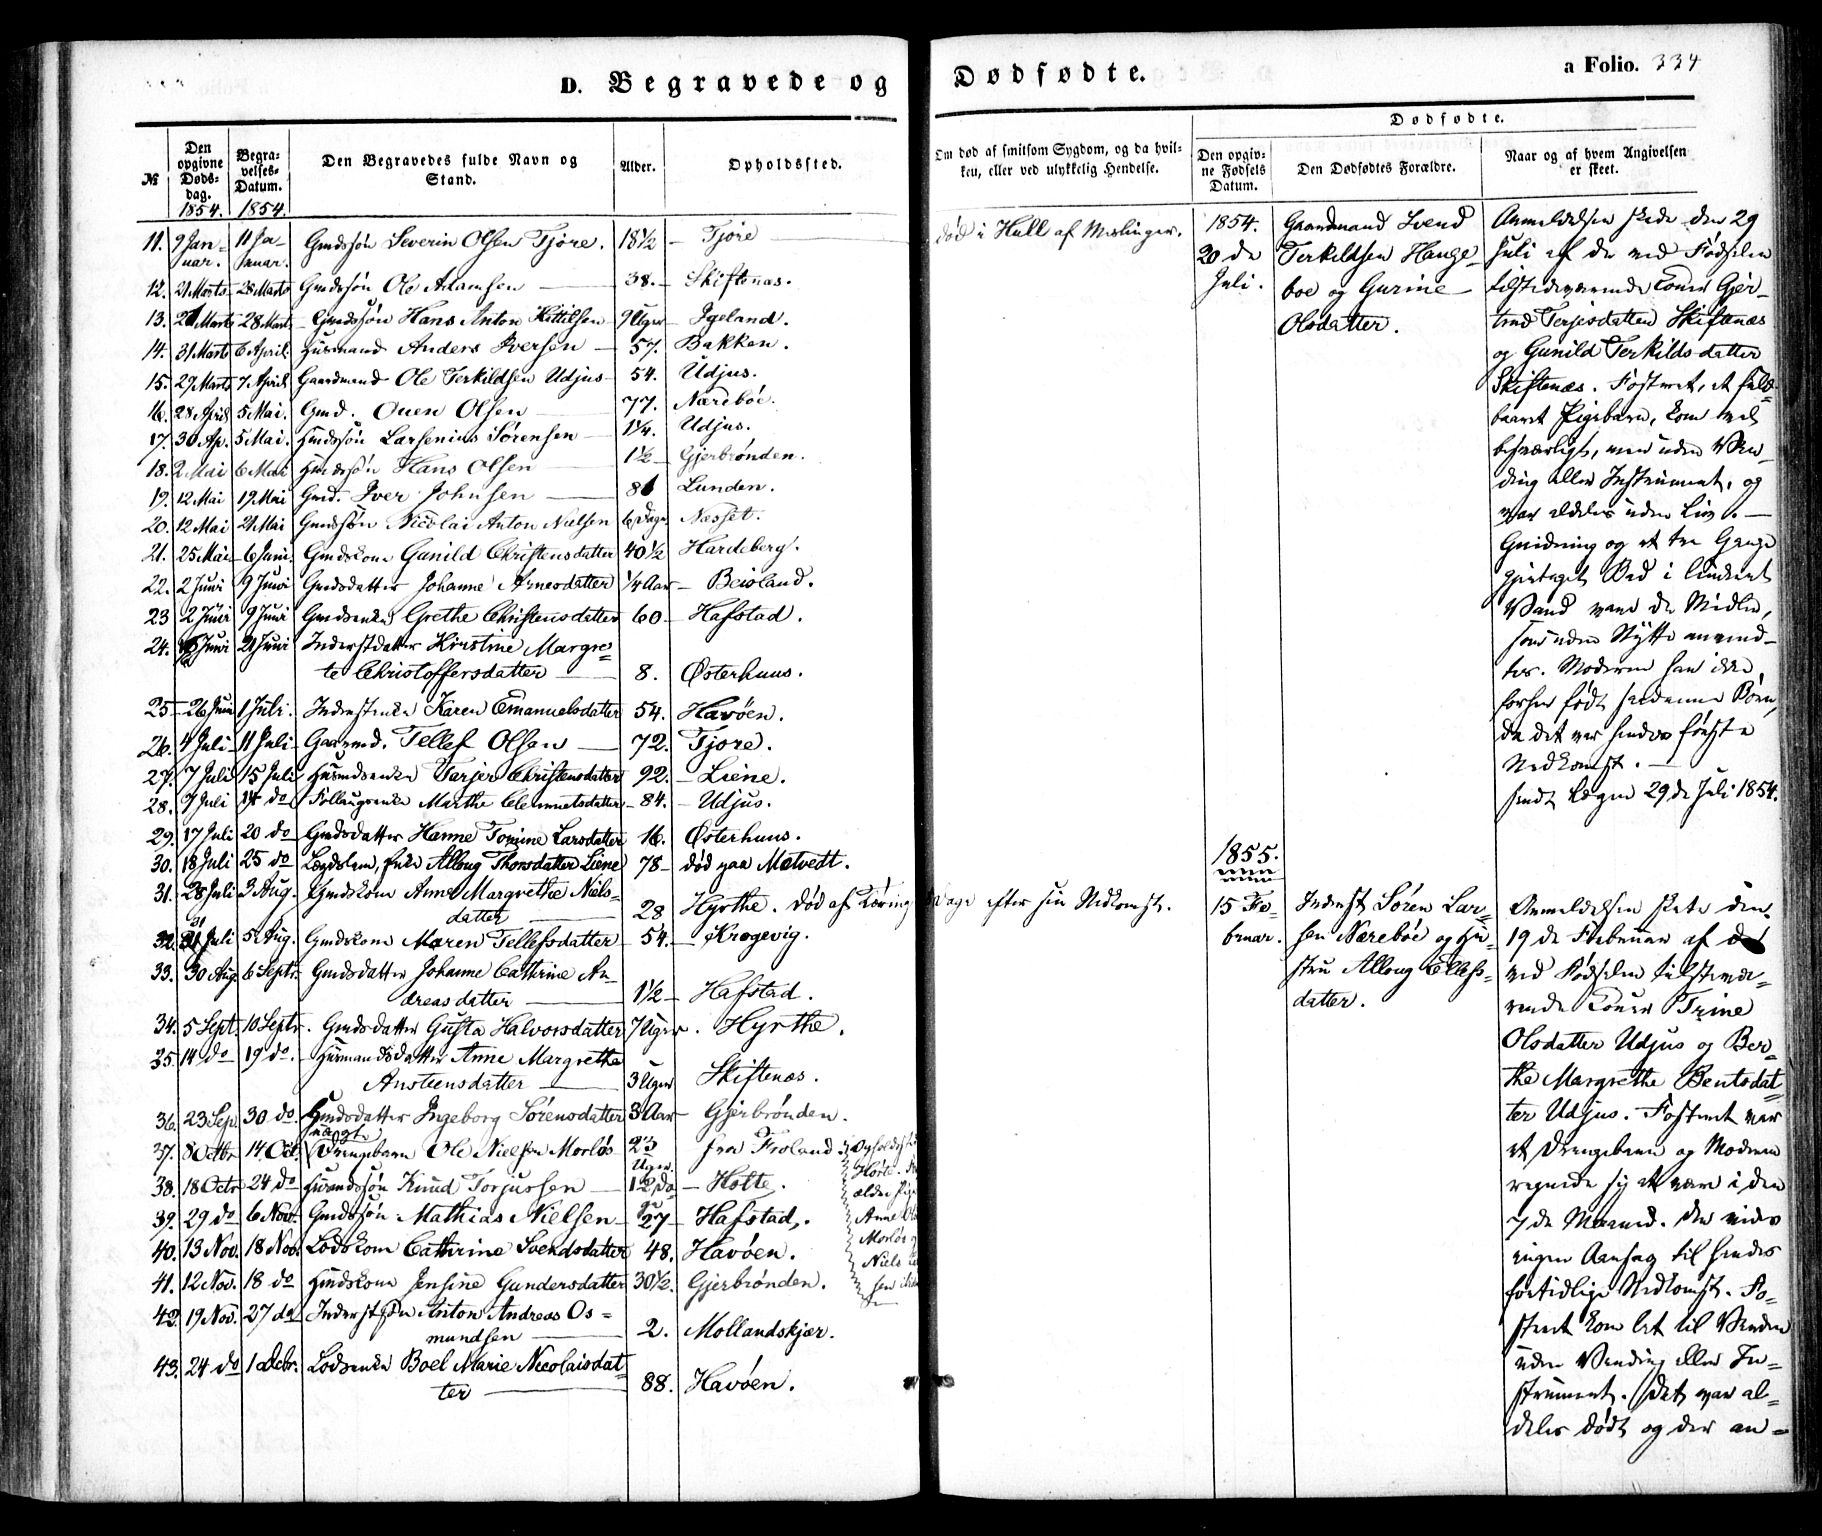 D. Begravede og Dødfødte.
a Folio. 334
№
Den opgivne Dødsdag. 1854.
Begravelses-Datum. 1854.
Den Begravedes fulde Navn og Stand.
Alder.
Opholdssted.
Om død af smitsom Sygdom, og da hvilken, eller ved ulykkelig Hendelse.
Dødfødte.
Den opgivne Fødsels Datum.
Den Dødfødtes Forældre.
Naar og af hvem Angivelsen er skeet.
11. 9 Januar. 11 Januar. Gmdssøn Severin Olsen Tjore. 18½ Tjore død i Hull af Meslinger.
12. 21 Marts 28 Marts Gmdssøn Ole Adamsen 38. Skiftenæs.
13. 21 Marts 28 Marts Gmdssøn Hans Anton Kittilsen 9 Uger Igeland.
14. 31 Marts 6 April. Husmand Anders Iversen 57. Bakken.
15. 29 Marts 7 April Gaardmand Ole Terkildsen Udjus 54. Udjus.
16. 28 April 5 Mai. Gmd. Ouen Olsen 77. Nærebøe.
17. 30 Ap. 5 Mai. Hmdssøn Larsenius Sørensen 1¼. Udjus.
18. 2 Mai 6 Mai Hmdssøn Hans Olsen 1½ Gjerbrønden.
19. 12 Mai 19 Mai Gmd. Iver Johnsen 81 Lunden.
20. 12 Mai 21 Mai Gmdssøn Nicolai Anton Nielsen 6 Dage Næsset.
21. 25 Mai 6 Juni. Gmdskone Gunild Christensdatter 40½ Hardeberg.
22. 2 Juni 9 Juni Gmdsdatter Johanne Arnesdatter ¼ Aar Beisland.
23 2 Juni 9 Juni Gmdsenke Grethe Christensdatter 60 Hafstad.
24. Juni 21 Juni Inderstdatter Kirstine Margre=
te Christoffersdatter 8. Østerhuus.
25 26 Juni 1 Juli. Inderstenke Karen Emanuelsdatter 54. Havøen.
26. 4 Juli 11 Juli Gaardmd. Tellef Olsen 72. Tjore.
27. 7 Juli 15 Juli Husmdsenke Tarjer Christensdatter 92. Liene.
28. 7 Juli 14 do Follaugsenke Marthe Clemmetsdatter 84. Udjus.
29. 17 Juli 20 do Gmdsdatter Hanne Tomine Larsdatter 16. Østerhuus.
30. 18 Juli 25 do Lægdslem, Enke Alloug Thorsdatter Liene 78 død paa Molvedt.
31. 28 Juli 3 Aug. Gmdskone Anne Margrethe Niels=
datter 28 Hyrthe. død af Tæring Dage efter sin Nedkomst.
32. 31 Juli 5 Aug. Gmdskone Maren Tellefsdatter 54. Krogevig.
33. 30 Aug. 6 Septr. Gmdsdatter Johanne Cathrine An=
dreasdatter 1½ Hafstad.
34. 5 Sept. 10 Septr. Gmdsdatter Gusta Halvorsdatter 7 Uger. Hyrthe.
35. 14 do 19 do. Husmandsdatter Anne Margrethe
Austeensdatter 3 Uger Skiftenæs.
36. 23 Sep. 30 do. Hmdsdatter Ingeborg Sørensdatter 3 Aar Gjerbrønden.
37. 8 Octbr 14 Oct. uægt Drengebarn Ole Nielsen Morløs 23 Uger. fra Froland
38. 18 Octr 24 do Husmandssøn Knud Torjussen 12 do Holte.
39. 29 do 6 Nov. Gmdssøn Mathias Nielsen 27 Hafstad.
40. 13 Nov. 18 Nov. Lodskone Cathrine Svendsdatter 48. Havøen.
41. 12 Nov. 18 do Hmdskone Jensine Gundersdatter 30½. Gjerbrønden.
42. 19 Nov. 27 do Inderstsøn Anton Andreas Os=
mundsen 2. Mollandskjær.
43. 24 do 1 Decbr. Lodsenke Boel Marie Nicolaisdat=
ter 88. Havøen.
1854.
30 de
Juli.
Gaardmand Svend
Terkildsen Hauge=
boe og Gurine
Olsdatter.
Anmeldelsen skede den 29
Juli af de ved Fødselen
tilstedeværende Koner Gjer=
trud Terjesdatter Skiftenæs
og Gunild Terkildsdatter
Skiftenæs. Fosteret, et fuld=
baaret Pigebarn, kom vel
besværligt, men uden Ven=
ding eller Instrument, og
var aldeles uden Liv. —
Gnidning og et tre Gange
gjentaget Bad i lunkent
Vand vare de Midler,
som uden Nytte anvend=
tes. Moderen har ikke
forhen født Børn,
da det var hendes første
Nedkomst. —
sendt Lægen 29 de Juli 1854.
1855.
15 Fe=
bruar.
Inderst Søren Lar=
sen Nærebøe og Hu=
stru Alloug Ellefs=
datter.
Anmeldelsen skete den
19 de Februar af de
ved Fødselen tilstedevæ=
rende Koner Trine
Olsdatter Udjus og Ber=
the Margrethe Bentsdat=
ter Udjus. Fosteret var
et Drengebarn og Moderen
regnede sig at være i den
7 de Maaned. Der vides
ingen Aarsag til hendes
fortidlige Nedkomst. Fo=
steret kom let til Verden
uden Vending eller In=
strument. Det var al=
deles dødt og der an=